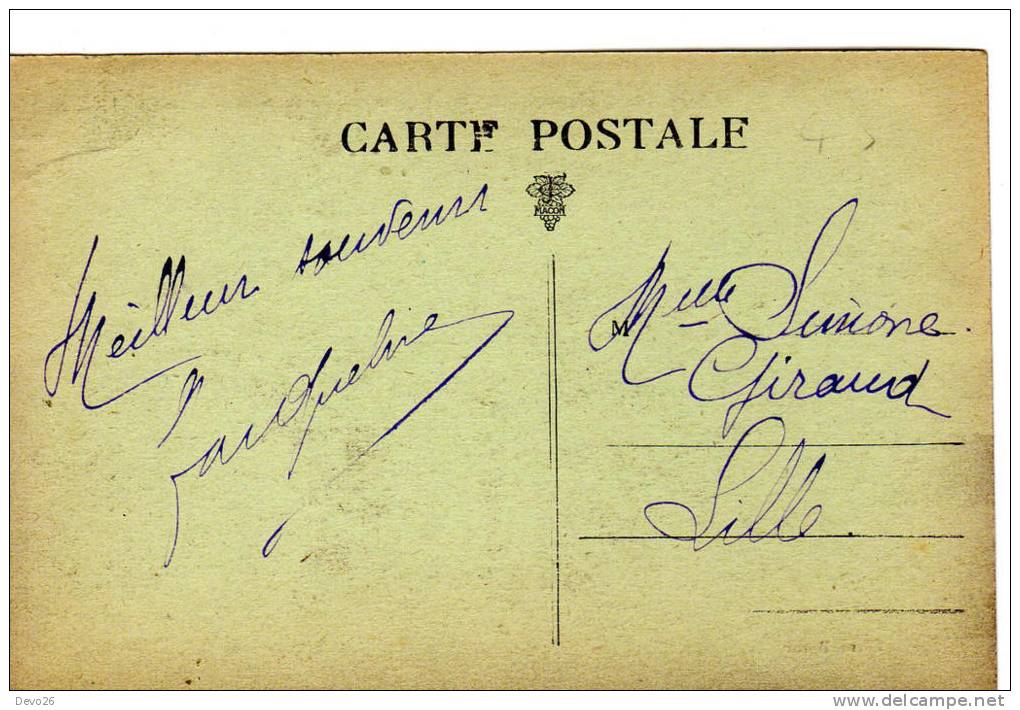 CARTE POSTALE
MACON
Meilleur souvenir
Jacqueline
M Melle Simone
Giraud
Lille.
Devo26
www.delcampe.net